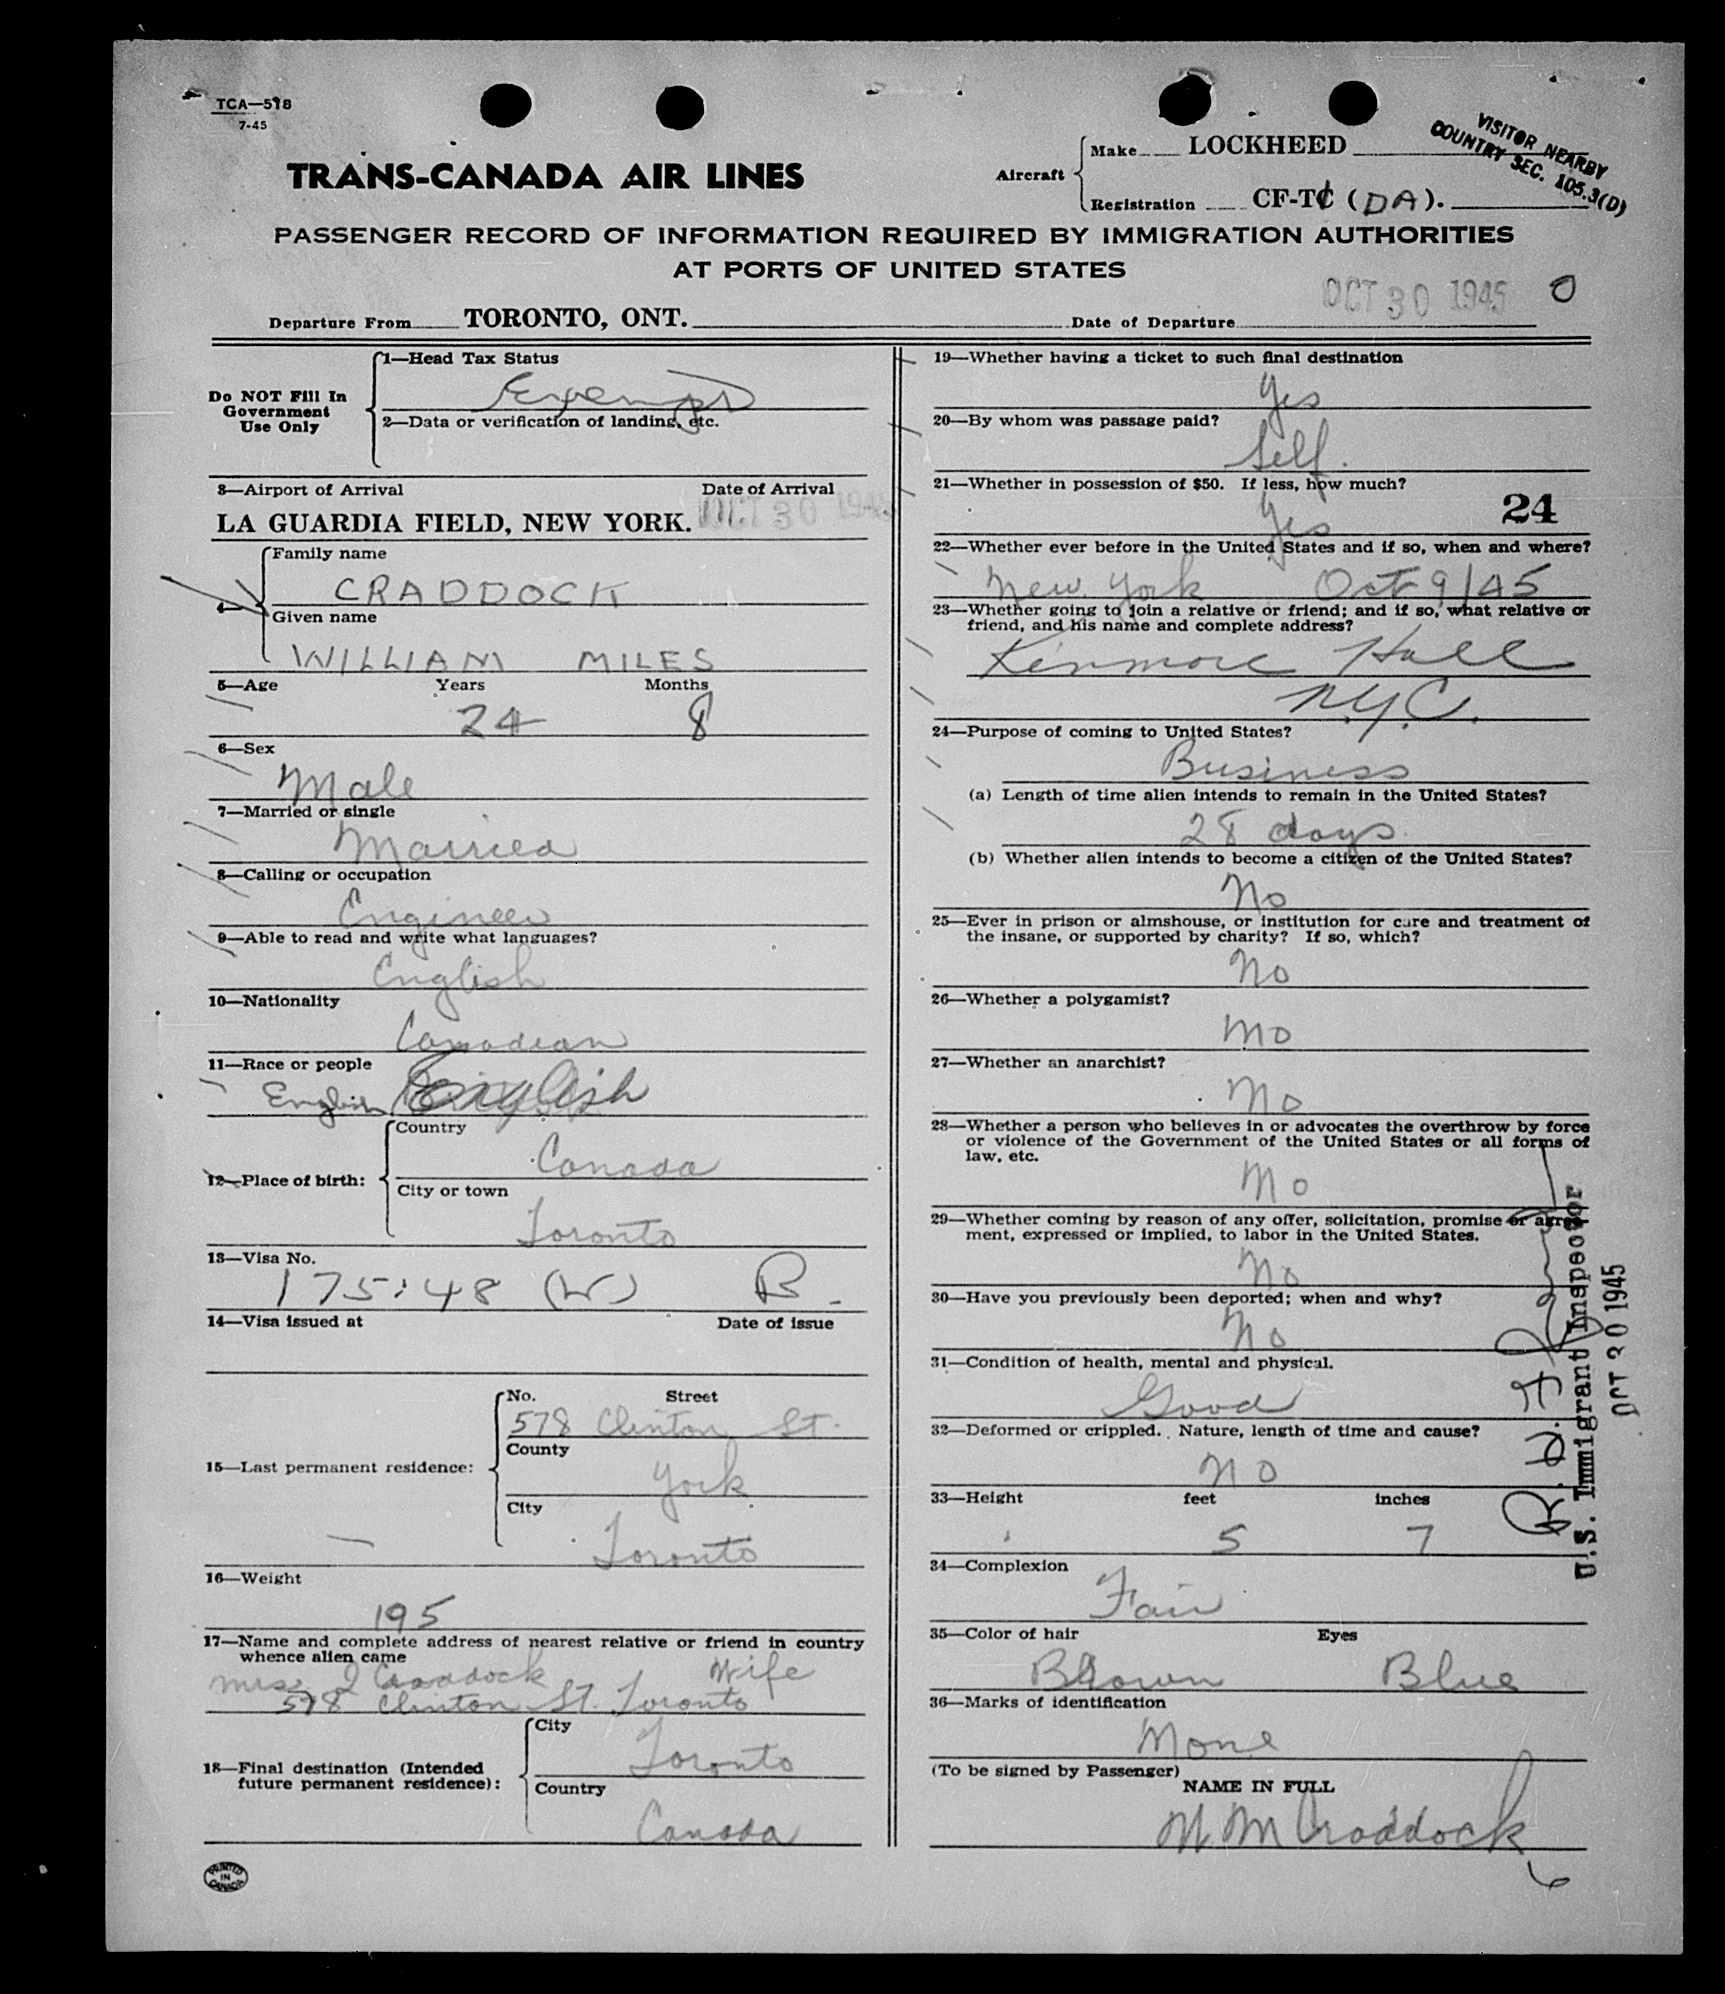 TCA—518
7-45
TRANS-CANADA AIR LINES
Aircraft
Make LOCKHEED
Registration CF-TC (DA).
VISITOR NEARBY
COUNTRY SEC. 105.3(D)
PASSENGER RECORD OF INFORMATION REQUIRED BY IMMIGRATION AUTHORITIES
AT PORTS OF UNITED STATES
Departure From TORONTO, ONT. Date of Departure OCT 30 1945 0
Do NOT Fill In
Government
Use Only
1—Head Tax Status
Exempt
2—Data or verification of landing, etc.
3—Airport of Arrival Date of Arrival
LA GUARDIA FIELD, NEW YORK. OCT 30 1945
4—
Family name
CRADDOCK
Given name
WILLIAM MILES
5—Age Years Months
24 8
6—Sex
Male
7—Married or single
Married
8—Calling or occupation
Engineer
9—Able to read and write what languages?
English
10—Nationality
Canadian
11—Race or people
English English
12—Place of birth:
Country
Canada
City or town
Toronto
13—Visa No.
175:48 (W) B
14—Visa issued at Date of issue
15—Last permanent residence:
No. Street
578 Clinton St.
County
York
City
Toronto
16—Weight
195
17—Name and complete address of nearest relative or friend in country
whence alien came
Mrs. J Craddock Wife
578 Clinton St. Toronto
18—Final destination (Intended
future permanent residence):
City
Toronto
Country
Canada
PRINTED
IN
CANADA
19—Whether having a ticket to such final destination
Yes
20—By whom was passage paid?
Self.
21—Whether in possession of $50. If less, how much?
Yes 24
22—Whether ever before in the United States and if so, when and where?
New York Oct 9/45
23—Whether going to join a relative or friend; and if so, what relative or
friend, and his name and complete address?
Kenmore Hall
N.Y.C.
24—Purpose of coming to United States?
Business
(a) Length of time alien intends to remain in the United States?
28 days
(b) Whether alien intends to become a citizen of the United States?
No
25—Ever in prison or almshouse, or institution for care and treatment of
the insane, or supported by charity? If so, which?
No
26—Whether a polygamist?
No
27—Whether an anarchist?
No
28—Whether a person who believes in or advocates the overthrow by force
or violence of the Government of the United States or all forms of
law, etc.
No
29—Whether coming by reason of any offer, solicitation, promise or agree-
ment, expressed or implied, to labor in the United States.
No
30—Have you previously been deported; when and why?
No
31—Condition of health, mental and physical.
Good
32—Deformed or crippled. Nature, length of time and cause?
No
33—Height feet inches
5 7
34—Complexion
Fair
35—Color of hair Eyes
Brown Blue
36—Marks of identification
None
(To be signed by Passenger)
NAME IN FULL
W. M Craddock
6
U.S. Immigrant Inspector
OCT 30 1945